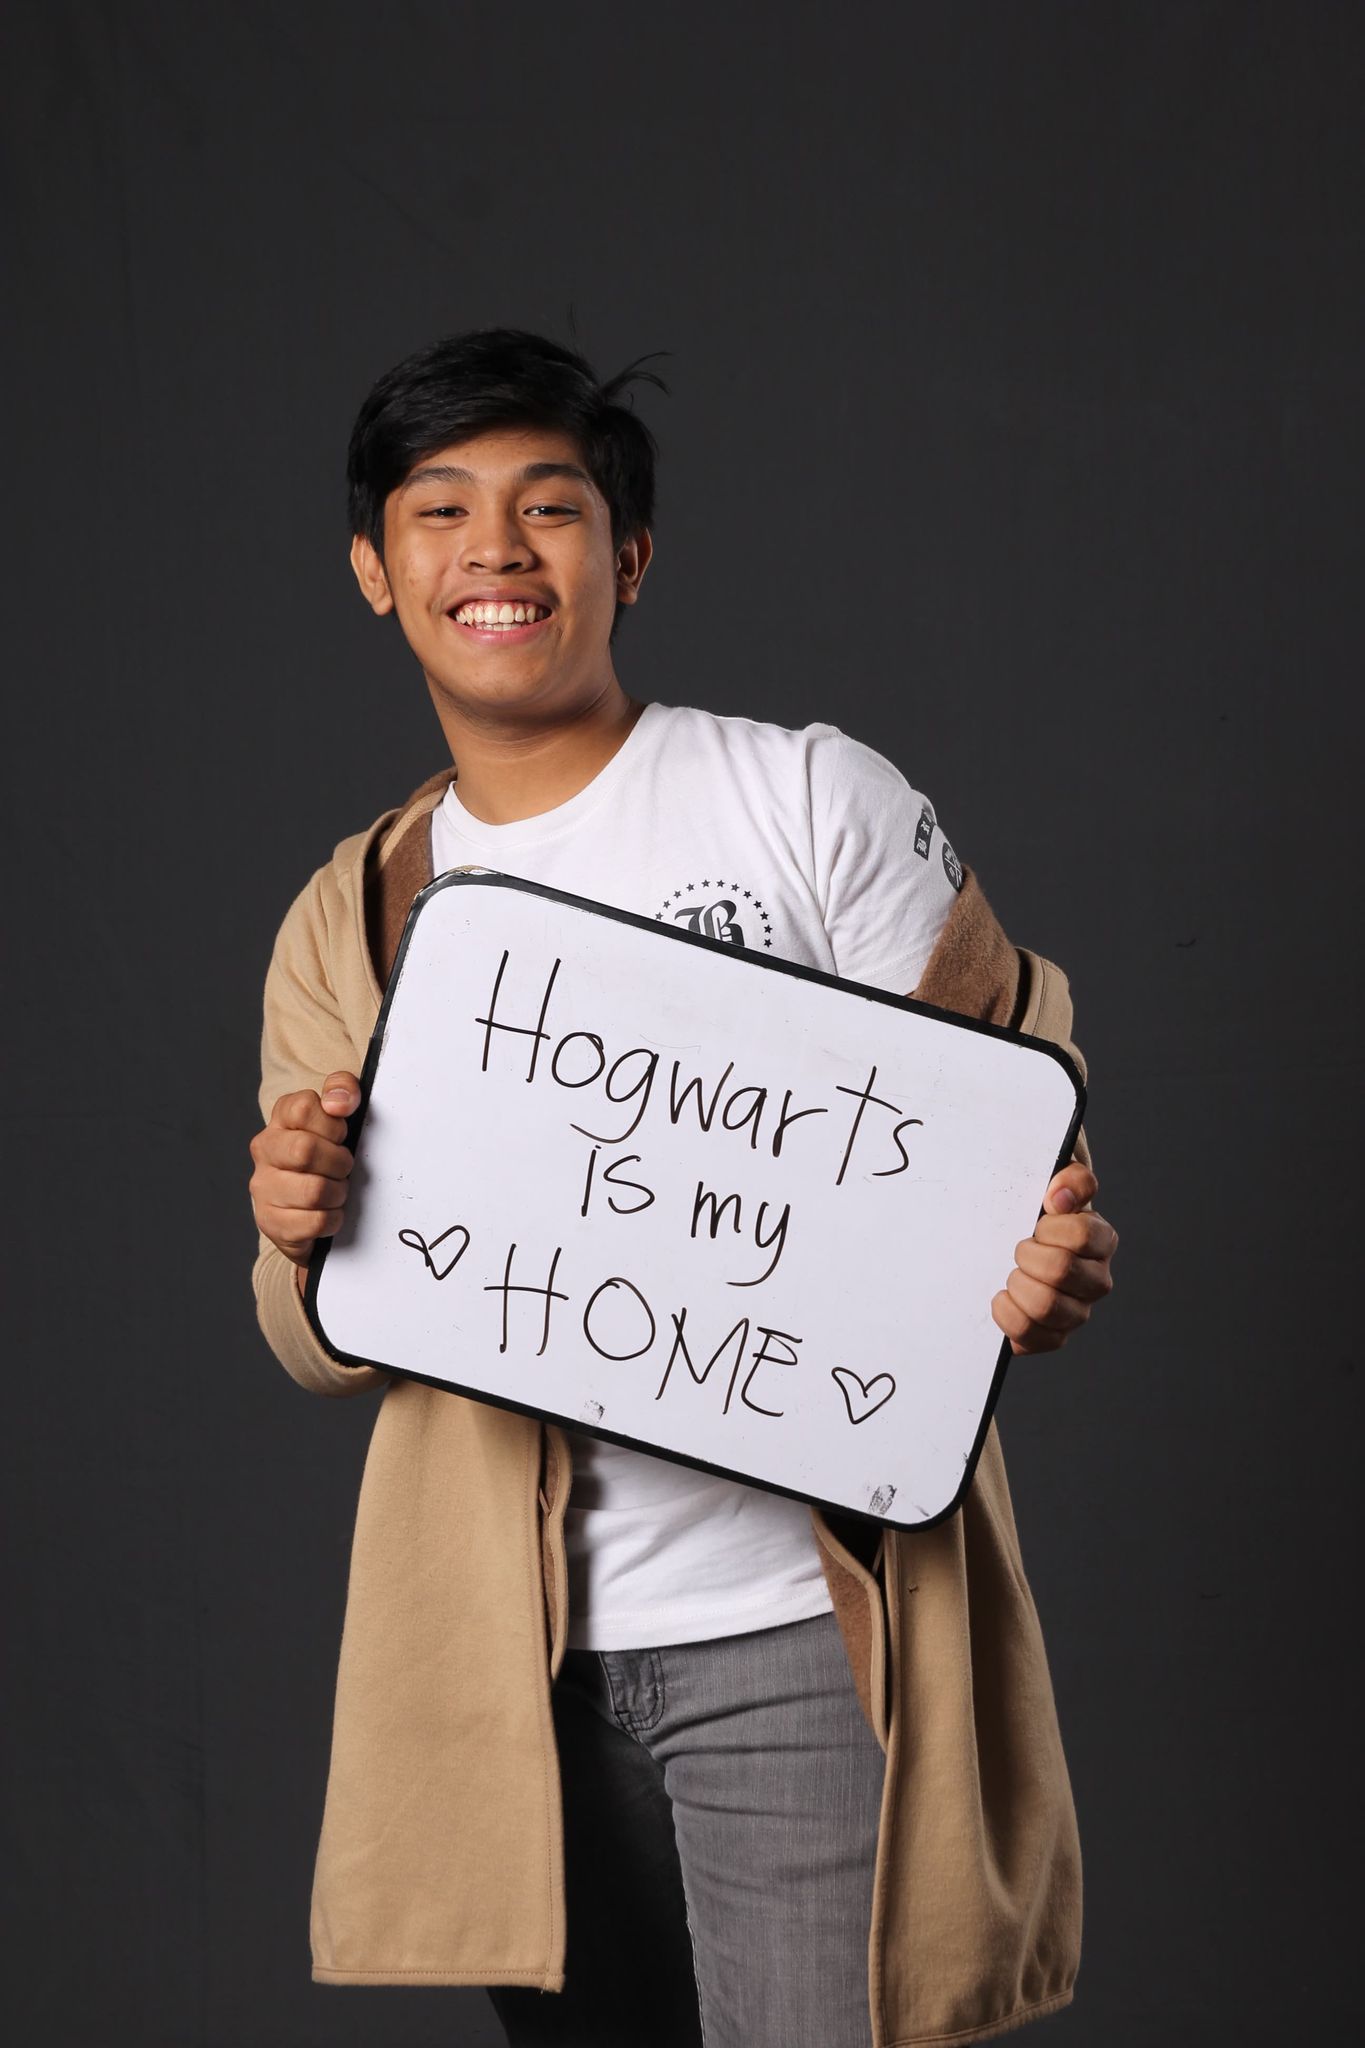 Hogwarts
is my
HOME